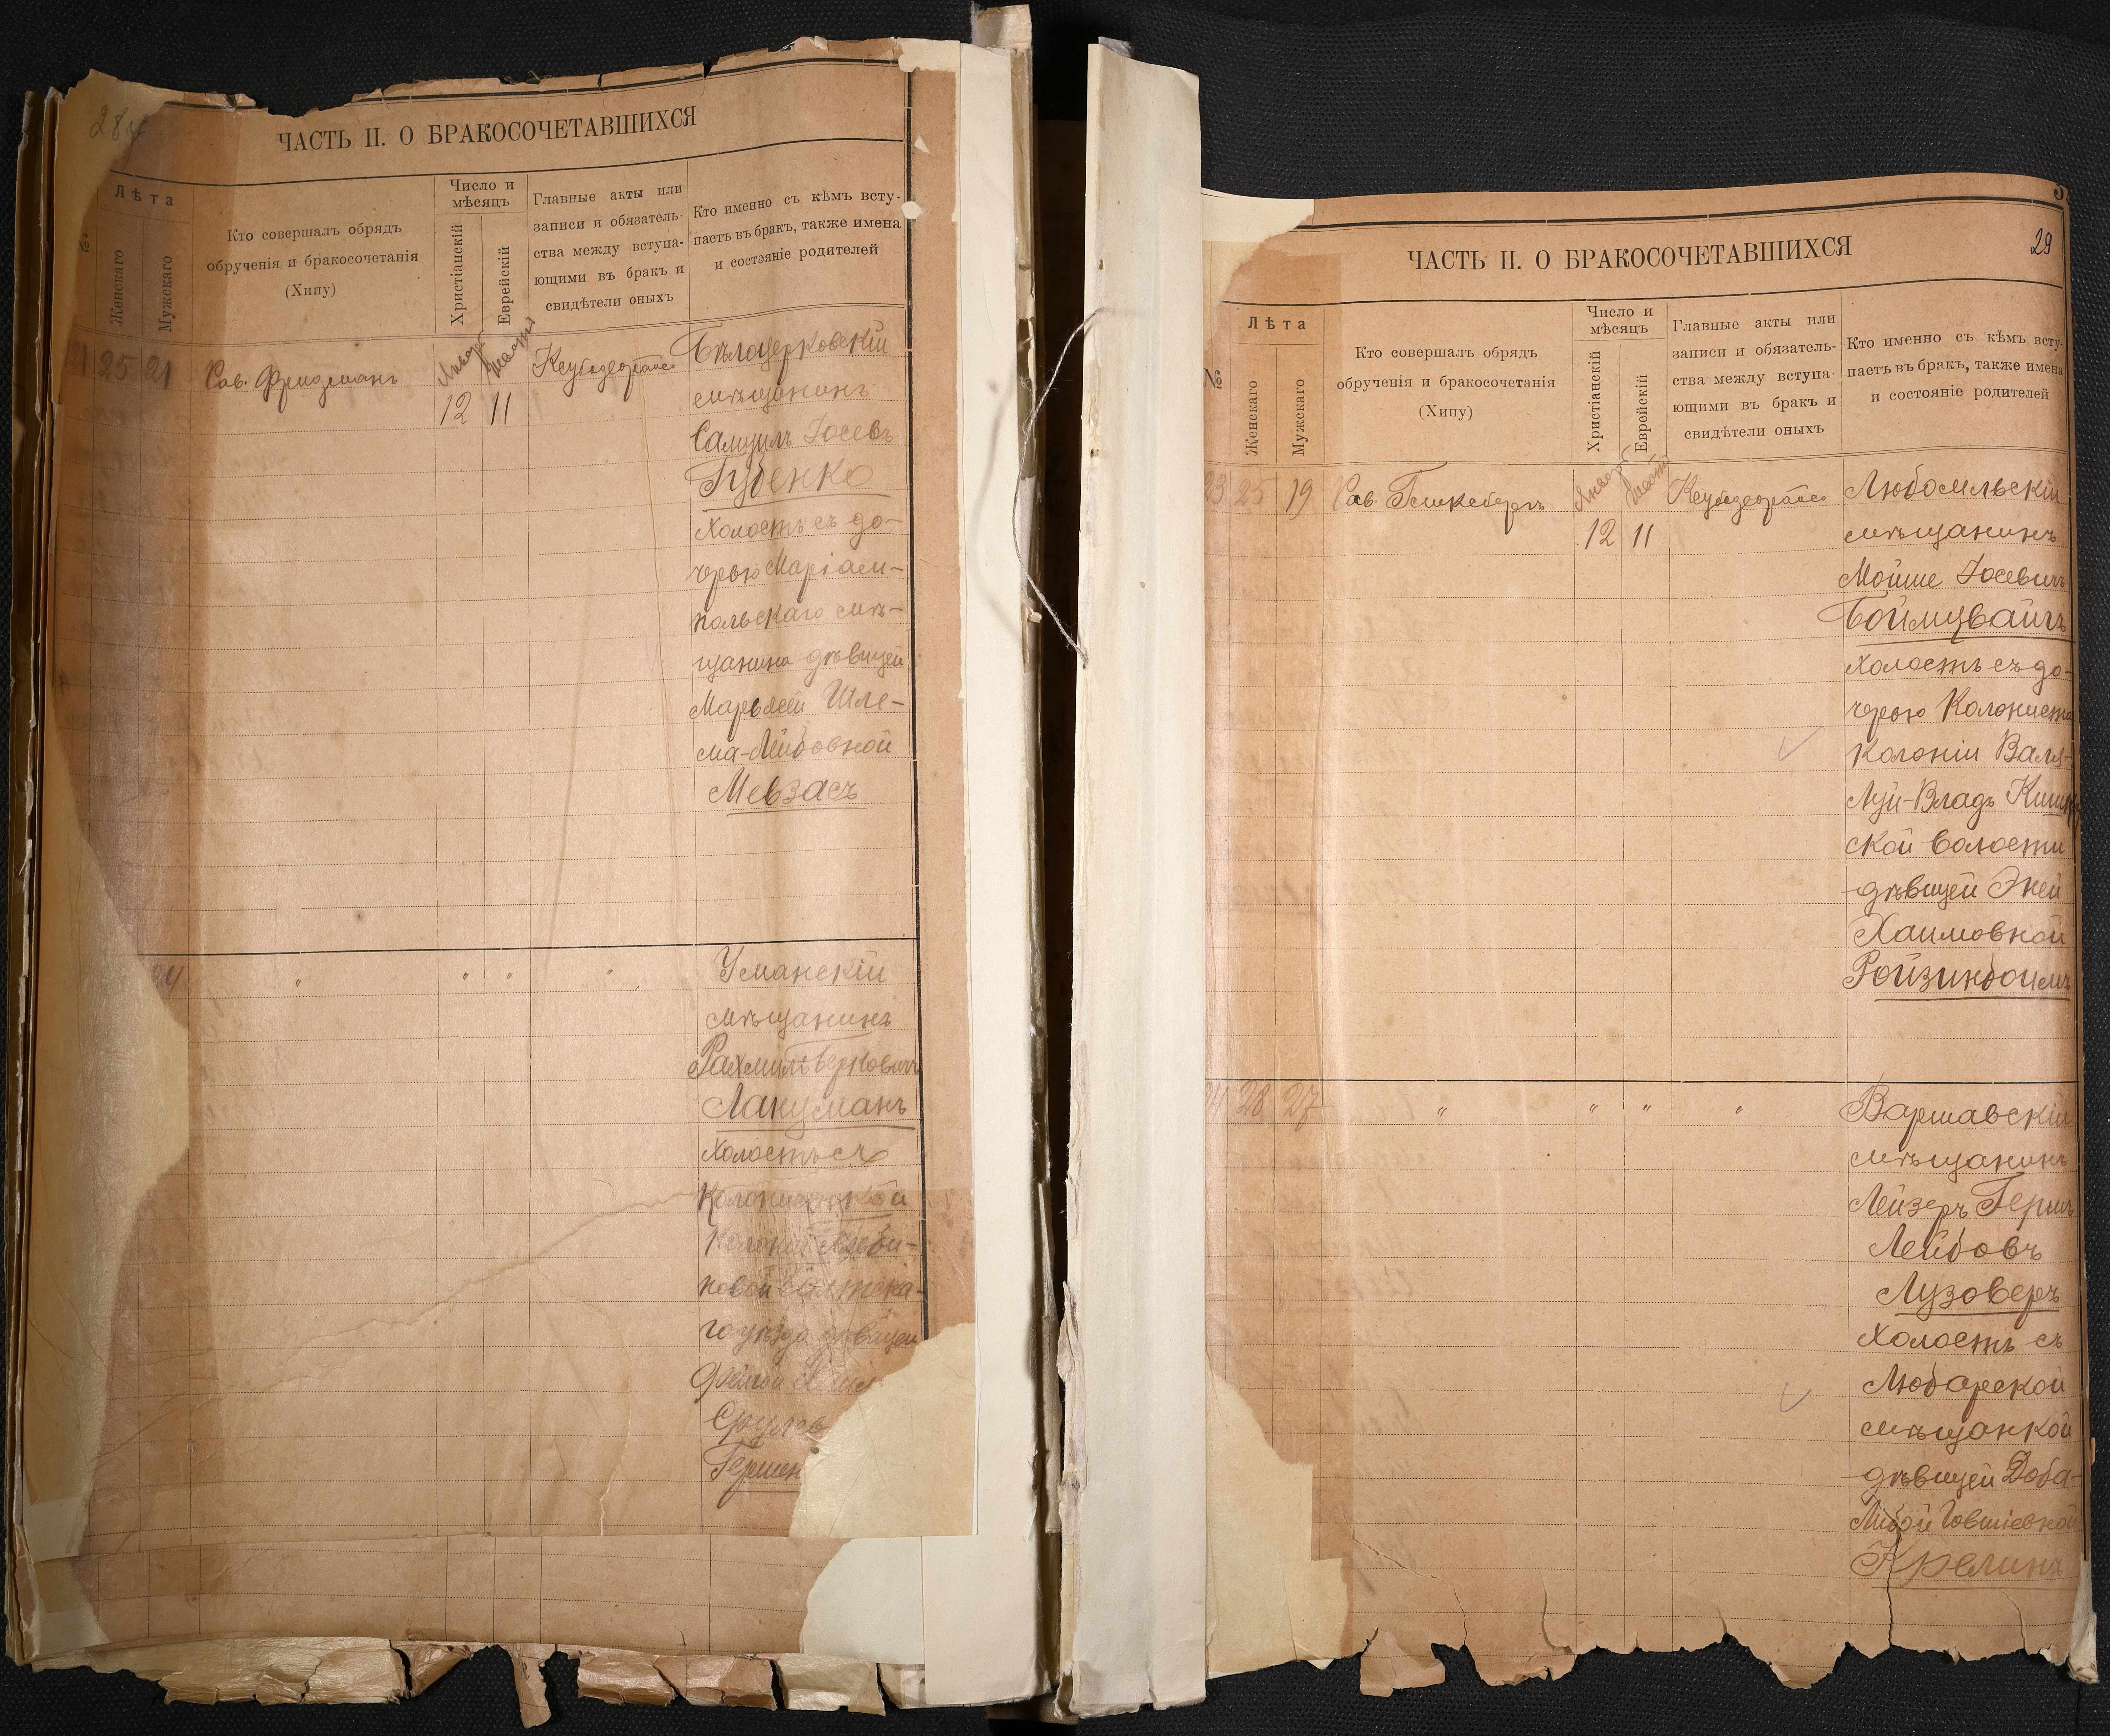 ЧАСТЬ II. О БРАКОСОЧЕТАВШИХСЯ
№
Лѣта
Женскаго
Мужскаго
Кто совершалъ обрядъ
обрученія и бракосочетанія
(Хипу)
Число и
мѣсяцъ
Христіанскій
Еврейскій
Главные акты или
записи и обязатель-
ства между вступа-
ющими въ бракъ и
свидѣтели оныхъ
Кто именно съ кѣмъ всту-
паетъ въ бракъ, также имена
и состояніе родителей
21 25 21 Рав. Фридманъ
Январь
12 11
Бѣлоцерковскій
мѣщанинъ
Самуилъ Іосевъ
Губенко
Холостъ съ до-
черью Маріам-
польскаго мѣ-
щанина дѣвицей
Марьясей Шле-
ма-Лейбовной
Мевзасъ
24 " " " "
Уманскій
мѣщанинъ
Рахмиль Берковичъ
Лакуманъ
Холостъ съ
Колонисткой
Колоніи
го уѣзда дѣвицей
ЧАСТЬ II. О БРАКОСОЧЕТАВШИХСЯ
29
№
Лѣта
Женскаго
Мужскаго
Кто совершалъ обрядъ
обрученія и бракосочетанія
(Хипу)
Число и
мѣсяцъ
Христіанскій
Еврейскій
Главные акты или
записи и обязатель-
ства между вступа-
ющими въ бракъ и
свидѣтели оныхъ
Кто именно съ кѣмъ всту-
паетъ въ бракъ, также имена
и состояніе родителей
23 25 19 Рав.
Январь
12 11
Любомльскій
мѣщанинъ
Мойше Іосевичъ
Боймцвайгъ
Холостъ съ до-
черью Колониста
Колоніи Валя-
Луй-Владъ
ской волости
дѣвицей Эней
Хаимовной
Ройзинбоймъ
24 28 27 " " " "
Варшавскій
мѣщанинъ
Лейзеръ Гершъ
Лейбовъ
Лузоверъ
Холостъ съ
Любарской
мѣщанкой
дѣвицей Доба-
Либой Іовшіевной
Крелина